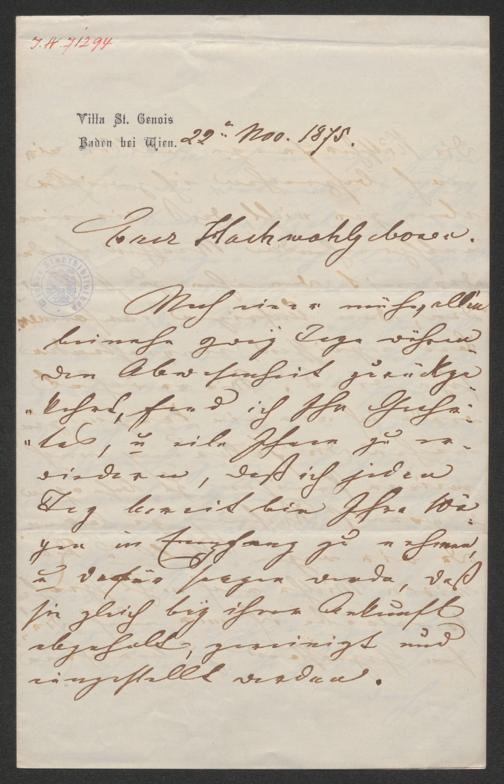 J.N. 71294
Villa St. Genois
Baden bei Wien.
22n Nov. 1875.
Euer Hochwohlgeboren.
Nach einer mühevollen
beinahe zwey Tage währen
den Abwesenheit zurückge
kehrt, fand ich Ihr Geehr-
tes, u eile Ihnen zu er-
wiedern, daß ich jeden
Tag bereit bin Ihre Wä-
gen in Empfang zu nehmen,
u dafür sorgen werde, daß
sie gleich bey ihrer Ankunft
abgeholt, gereinigt und
eingestellt werden.